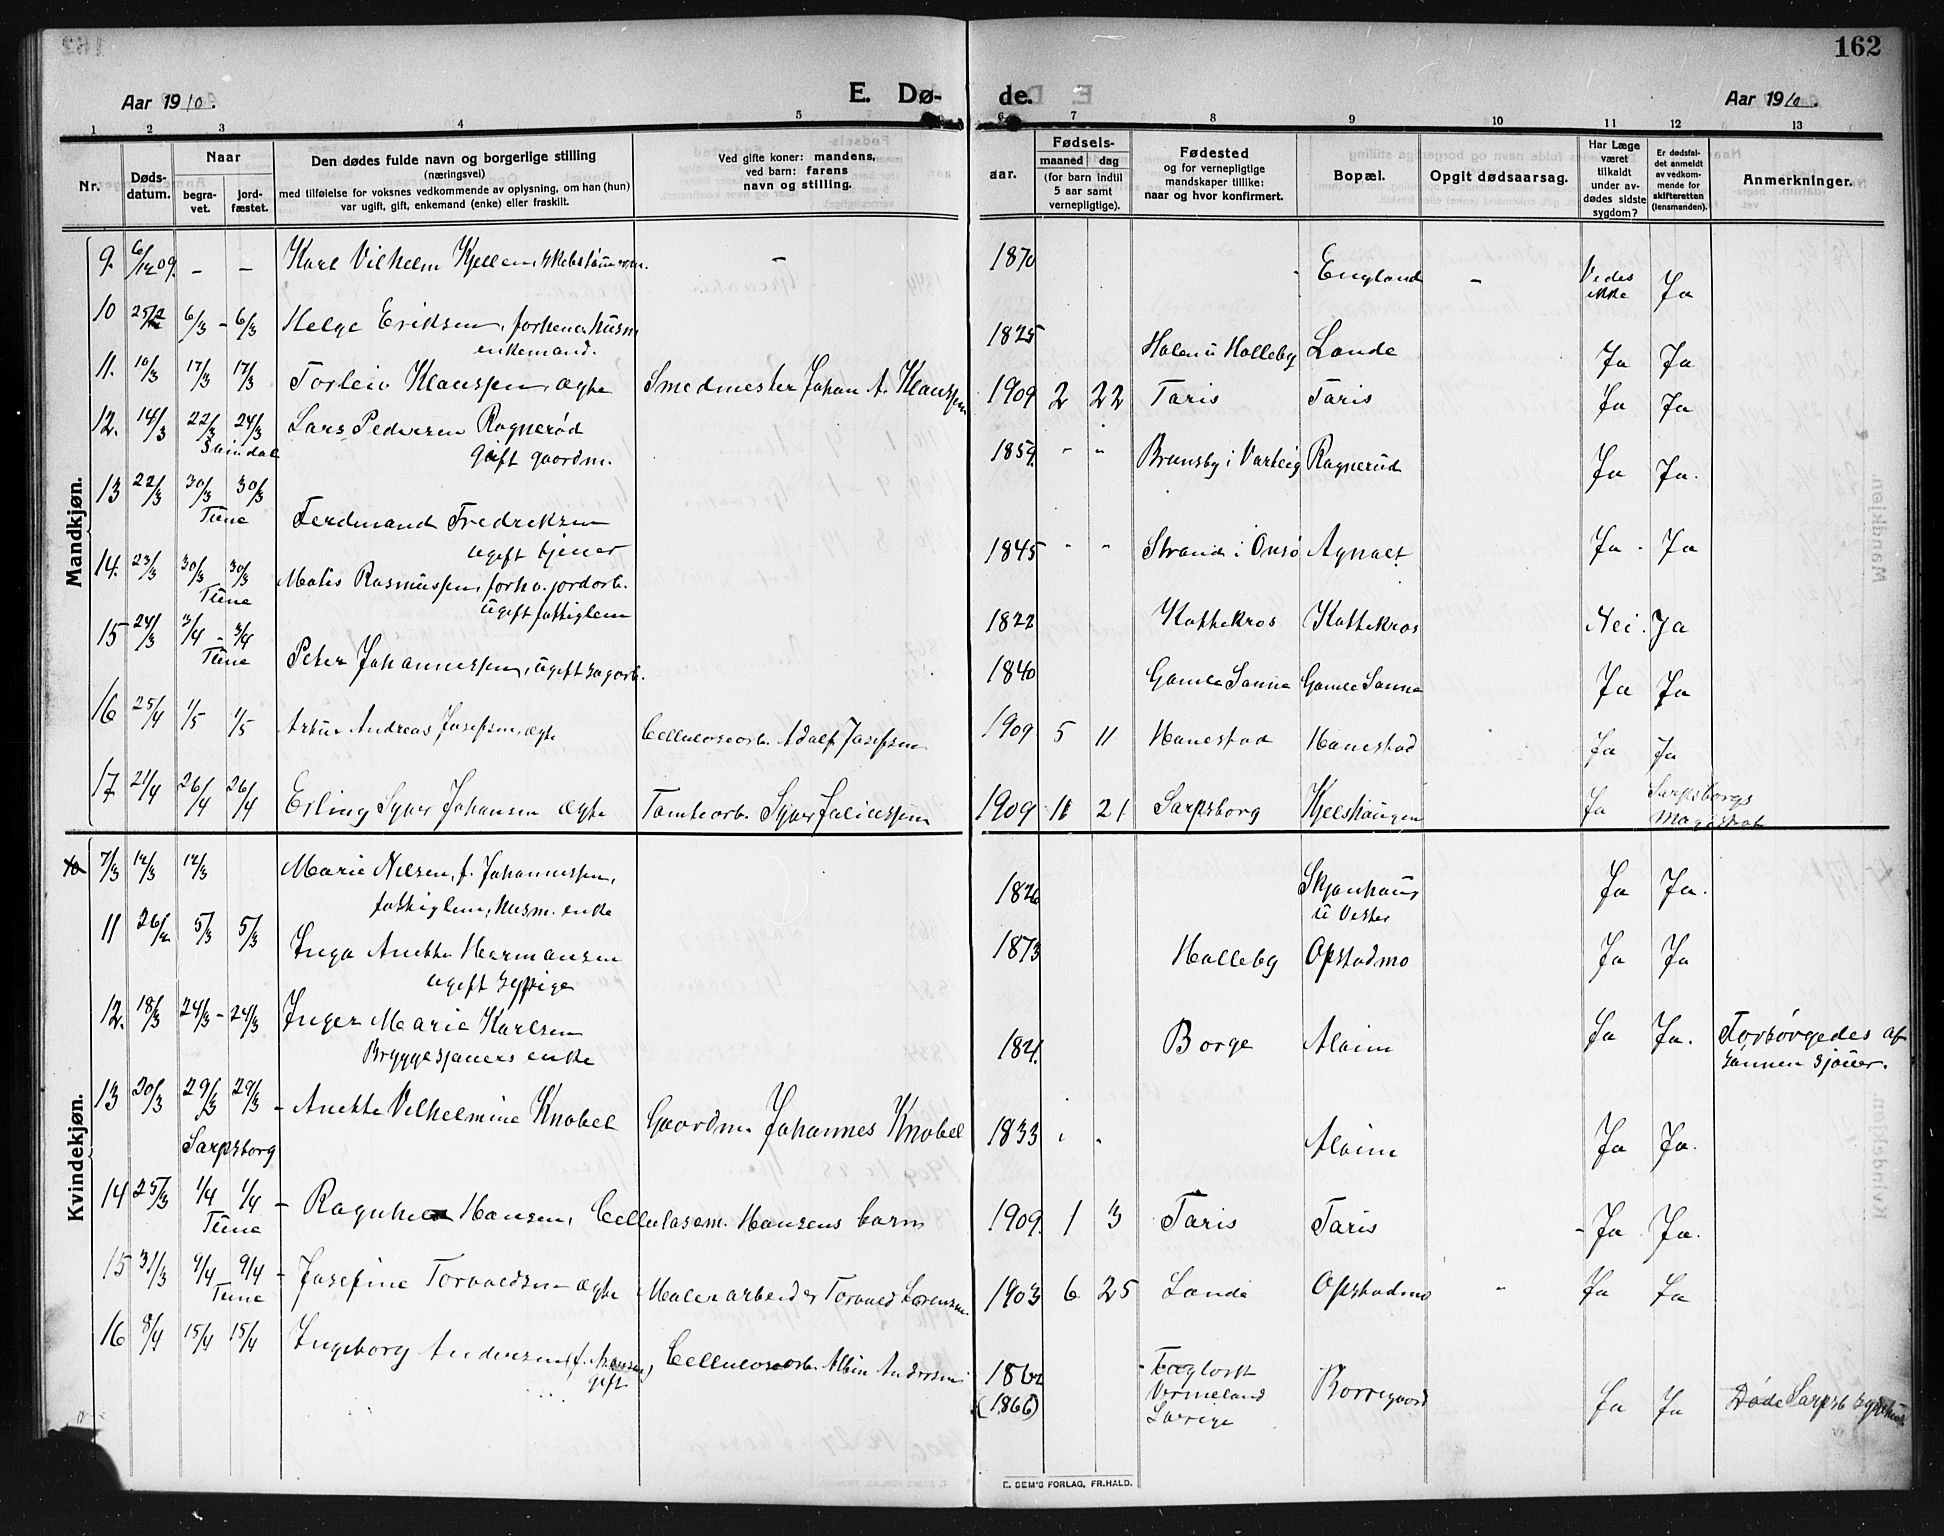 162
Aar 1910.
E. Dø-
de.
Aar 1910.
1 2 3 4 5 6 7 8 9 10 11 12 13
Nr.
Døds-
datum.
Naar
begra-
vet.
jord-
fæstet.
Den dødes fulde navn og borgerlige stilling
(næringsvei)
med tilføielse for voksnes vedkommende av oplysning, om han (hun)
var ugift, gift, enkemand (enke) eller fraskilt.
Ved gifte koner: mandens,
ved barn: farens
navn og stilling.
Fødsels-
aar.
maaned dag
(for barn indtil
5 aar samt
vernepligtige).
Fødested
og for vernepligtige
mandskaper tillike:
naar og hvor konfirmert.
Bopæl.
Opgit dødsaarsag.
Har Læge
været
tilkaldt
under av-
dødes sidste
sygdom?
Er dødsfal-
det anmeldt
av vedkom-
mende for
skifteretten
(lensmanden).
Anmerkninger.
Mandkjøn.
9. 6/12 09. - - Karl Vilhelm Kjellem, - 1870 England - Vides
ikke Ja
10 25/2 6/3 - 6/3 Helge Eriksen, forhenv. husm.
enkemand. 1825 Halen u Holleby Lande Ja Ja
11. 10/3 17/3 17/3 Torleiv Klaussen, ægte Smedmester Johan A. Klaussen 1909 2 22 Taris Taris Ja Ja
12. 14/3 22/3 24/3 Lars Pedersen Ragnerød
Svindal gift gaardm. 1859. - " Brunsby i Varteig Ragnerud Ja Ja.
13 22/3 30/3 30/3
Tune Ferdinand Fredriksen
ugift tjener 1845 " " Strand i Onsø Agnalt Ja. Ja
14. 23/3 30/3 30/3 Matis Rasmussen, forhv. jordarb.
Tune ugift fattiglem 1822 Kattekros Kattekros Nei. Ja
15 24/3 3/4 - 3/4
Tune Peter Johannessen, ugift sagarb. 1840 Gamle Sanne Gamle Sanne Ja Ja
16 25/4 1/5 1/5 Artur Andreas Josefsen, ægte Cellulosearb. Adolf Josefsen 1909 5 11 Hanestad Hanestad Ja Ja
17 21/4 26/4 26/4 Erling Syver Johansen ægte Tomtearb. Syver Juliussen 1909 11 21 Sarpsborg Kjelshaugen Ja Sarpsborgs
Magistrat
Kvindekjøn.
10 7/3 12/3 12/3 Marie Nilsen, f. Johannessen,
fattiglem, husm. enke 1826 Skjonhaug
u Vister Ja Ja.
11 26/2 5/3 5/3 Inga Anette Hermansen
ugift sypige 1873 Holleby Opstadmo Ja Ja
12. 18/3 24/3 - 24/3 Inger Marie Karlsen
Bryggesjauers enke 1821. Borge Alvim Ja Ja. Forsørgedes af
sønnen sjauer.
13 20/3 29/3 29/3 - Anette Vilhelmine Knobel Gaardm. Johannes Knobel 1833 " " Alvim Ja Ja.
Sarpsborg
14 25/3 1/4 1/4 - Ragnhild Hansen, Cellulosem. Hansens barn 1909. 1 3 Taris Taris - Ja Ja.
Tune
15 31/3 9/4 9/4 - Josefine Torvaldsen ægte Malerarbeider Torvald Lorensen 1903 6 25 Lande Opstadmo " Ja Ja
Tune
16 8/4 15/4 15/4 Ingeborg Andersen, f. Hansen,
gift Cellulosearb. Albin Andersen 1862
(1866) Vermeland
Sverige Borregaard Ja Ja Døde Sarpsb sygehus
E. SEM'S FORLAG, FR.HALD.